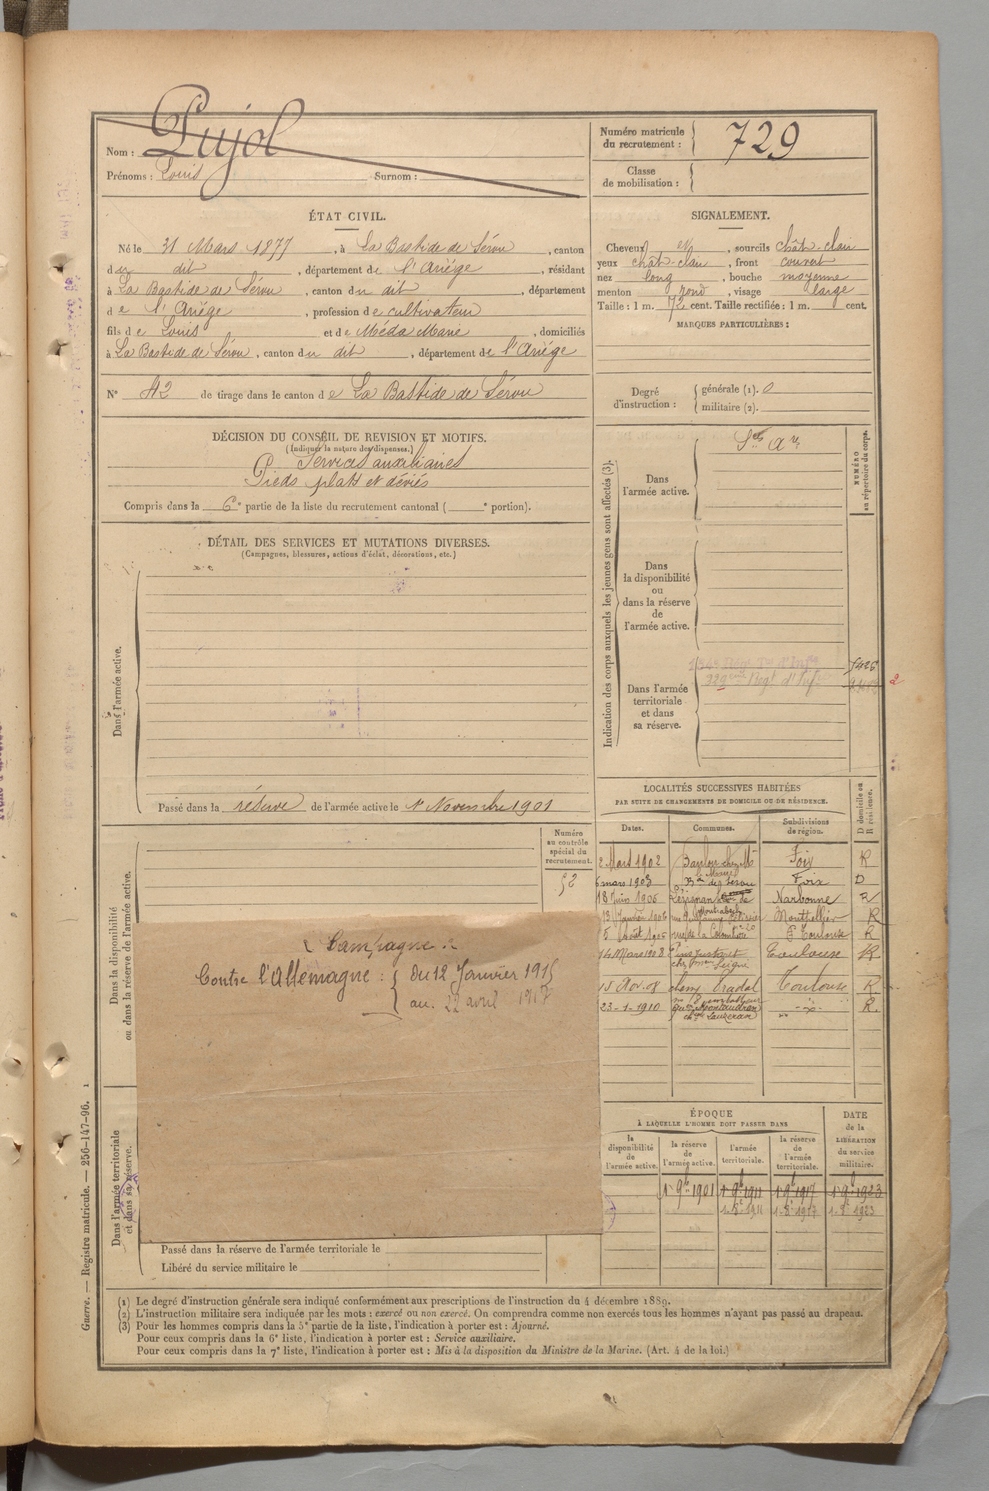 Nom : Pujol
Prénoms : Louis Surnom :
Numéro matricule du recrutement : 729
Classe de mobilisation :
ÉTAT CIVIL.
Né le 31 Mars 1877, à La Bastide de Sérou, canton
du dit, département de l'Ariége, résidant
à La Bastide de Sérou, canton du dit, département
de l'Ariége, profession de cultivateur
fils de Louis et de Méda Marie, domiciliés
à La Bastide de Sérou, canton du dit, département de l'Ariége
N° 42 de tirage dans le canton de La Bastide de Sérou
SIGNALEMENT.
Cheveux et, sourcils chât-clair
yeux chât-clair, front couvert
nez long, bouche moyenne
menton rond, visage large
Taille : 1 m. 72 cent. Taille rectifiée : 1 m. cent.
MARQUES PARTICULIÈRES :
Degré d'instruction : générale (1). 0
militaire (2).
DÉCISION DU CONSEIL DE REVISION ET MOTIFS.
(Indiquer la nature des dispenses.)
Services auxiliaires
Pieds plats et déviés
Compris dans la 6e partie de la liste du recrutement cantonal ( e portion).
DÉTAIL DES SERVICES ET MUTATIONS DIVERSES.
(Campagnes, blessures, actions d'éclat, décorations, etc.)
Dans l'armée active.
Passé dans la réserve de l'armée active le 1er Novembre 1901
Indication des corps auxquels les jeunes gens sont affectés (3).
NUMÉRO au répertoire du corps.
Dans l'armée active.
Dans la disponibilité ou dans la réserve de l'armée active.
Dans l'armée territoriale et dans sa réserve.
Numéro au contrôle spécial du recrutement.
52
Dans la disponibilité ou dans la réserve de l'armée active.
Campagne
Contre l'Allemagne : du 12 Janvier 1915
au 22 avril 1917
Dans l'armée territoriale et dans sa réserve.
Passé dans la réserve de l'armée territoriale le
Libéré du service militaire le
LOCALITÉS SUCCESSIVES HABITÉES
PAR SUITE DE CHANGEMENTS DE DOMICILE OU DE RÉSIDENCE.
Dates. Communes. Subdivisions de région. D domicile ou R résidence.
2 Mars 1902 Foix R
6 mars 1903 Foix D
18 Juin 1906 Lézignan Narbonne R
13 Janvier 1906 Montpellier R
5 Toulouse R
14 Mars 1908 Toulouse R
15 Nov. 08 Toulouse R
23-1-1910 R.
ÉPOQUE
À LAQUELLE L'HOMME DOIT PASSER DANS
la disponibilité de l'armée active. la réserve de l'armée active. l'armée territoriale. la réserve de l'armée territoriale. DATE de la LIBÉRATION du service militaire.
1er 9bre 1901 1er 9bre 1911 1er 9bre 1917 1er 9bre 1923
(1) Le degré d'instruction générale sera indiqué conformément aux prescriptions de l'instruction du 4 décembre 1889.
(2) L'instruction militaire sera indiquée par les mots : exercé ou non exercé. On comprendra comme non exercés tous les hommes n'ayant pas passé au drapeau.
(3) Pour les hommes compris dans la 5e partie de la liste, l'indication à porter est : Ajourné.
Pour ceux compris dans la 6e liste, l'indication à porter est : Service auxiliaire.
Pour ceux compris dans la 7e liste, l'indication à porter est : Mis à la disposition du Ministre de la Marine. (Art. 4 de la loi.)
Guerre. — Registre matricule. — 256-147-96.